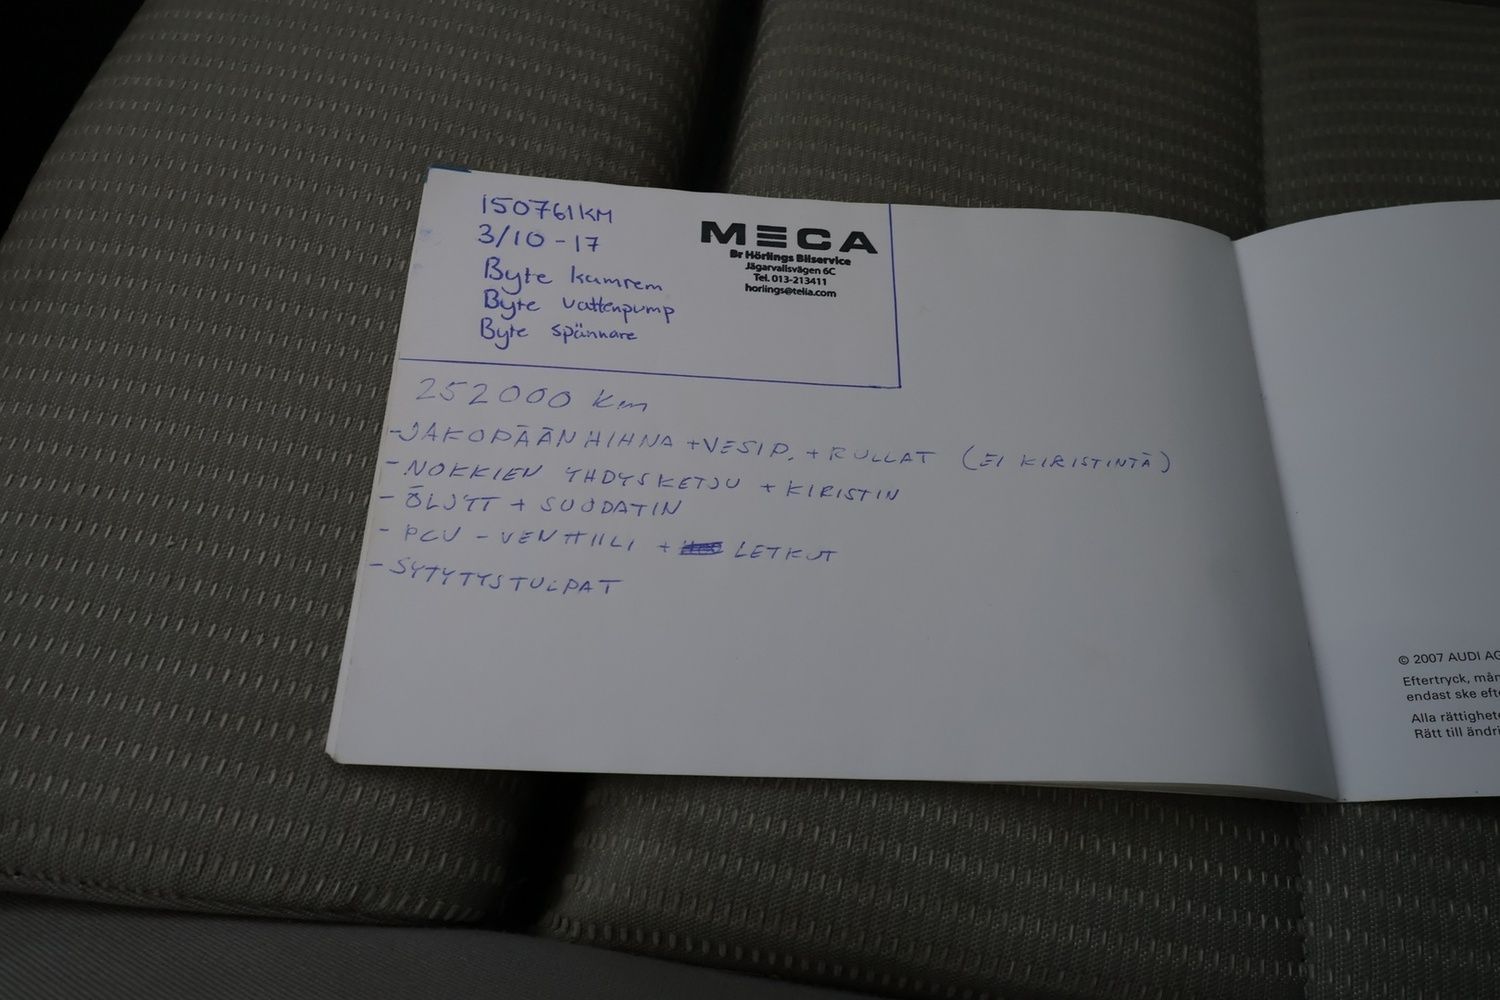 150761KM
3/10-17
Byte kamrem
Byte vattenpump
Byte spännare
MECA
Br Hörlings Bilservice
Jägarvallsvägen 6C
Tel. 013-213411
horlings@telia.com
252000 km
-JAKOPÄÄN HIHNA +VESIP. + RULLAT (EI KIRISTINTÄ)
-NOKKIEN YHDYSKETJU + KIRISTIN
- ÖLJYT + SUODATIN
- PCV - VENTTIILI + LETKUT
- SYTYTYSTULPAT
© 2007 AUDI AG
Eftertryck, mån
endast ske efte
Alla rättighete
Rätt till ändri